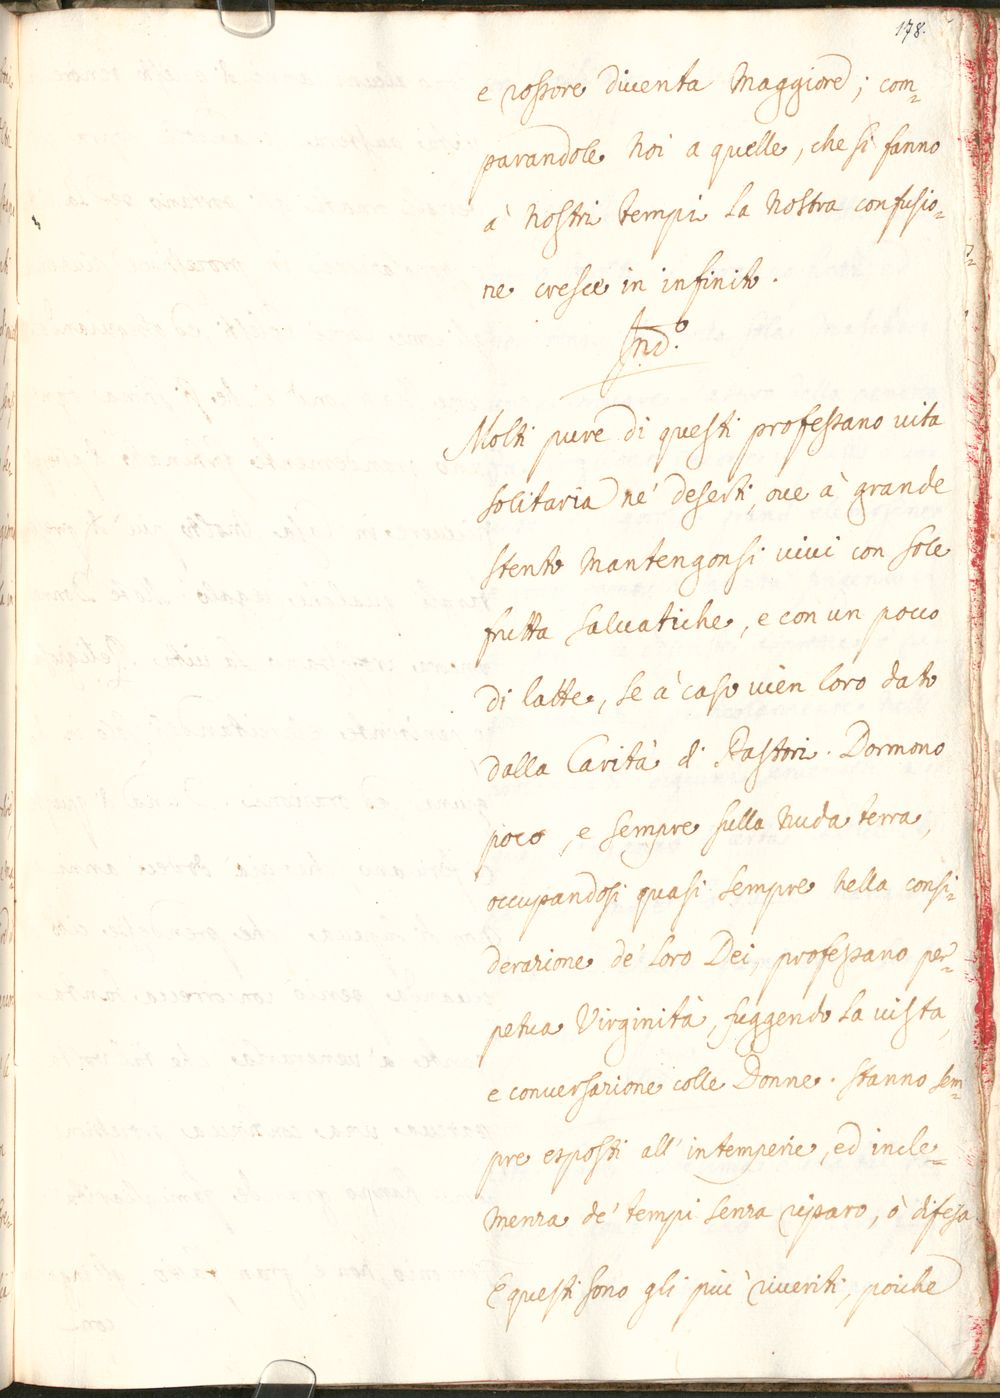 178.
e rossore diventa Maggiore; com=
parandole Noi a quelle, che si fanno
à Nostri tempi la Nostra confusio=
ne cresce in infinito.
Ind.º
Molti pure di questi professano vita
solitaria ne' deserti, ove à grande
stento Mantengonsi vivi con sole
frutta salvatiche, e con un pocco
di latte, se à caso vien loro dato
dalla Carità di Pastori. Dormono
poco, e sempre sulla Nuda terra,
occupandosi quasi sempre nella consi=
derazione de' loro Dei, professano per=
petua Virginità, fuggendo la vista,
e conversazione colle Donne. Stanno sem=
pre esposti all' intemperie, ed incle=
menza de' tempi senza riparo, ò difesa
E questi sono gli più riveriti, poiche